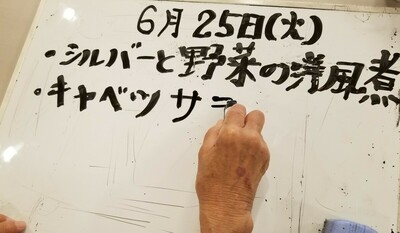 6月25日(火)
・シルバーと野菜の洋風煮
・キャベツサラ